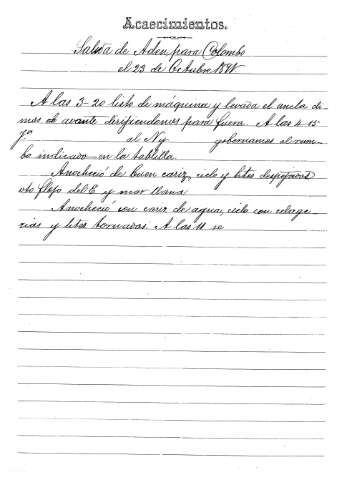 Acaecimientos.
Salida de Aden para Colombo
el 23 de Octubre 
A las 3-20 listo de máquina y levada el ancla di-
mos avante dirigiéndonos para fuera A las 4-15
al N gobernamos al rum-
bo indicado en la tablilla
Anocheció de buen cariz, cielo y htes despejados
vto flojo del E y mar llana
Amaneció con cariz de agua, cielo con celage-
rias y htes tomados. A las 11 se